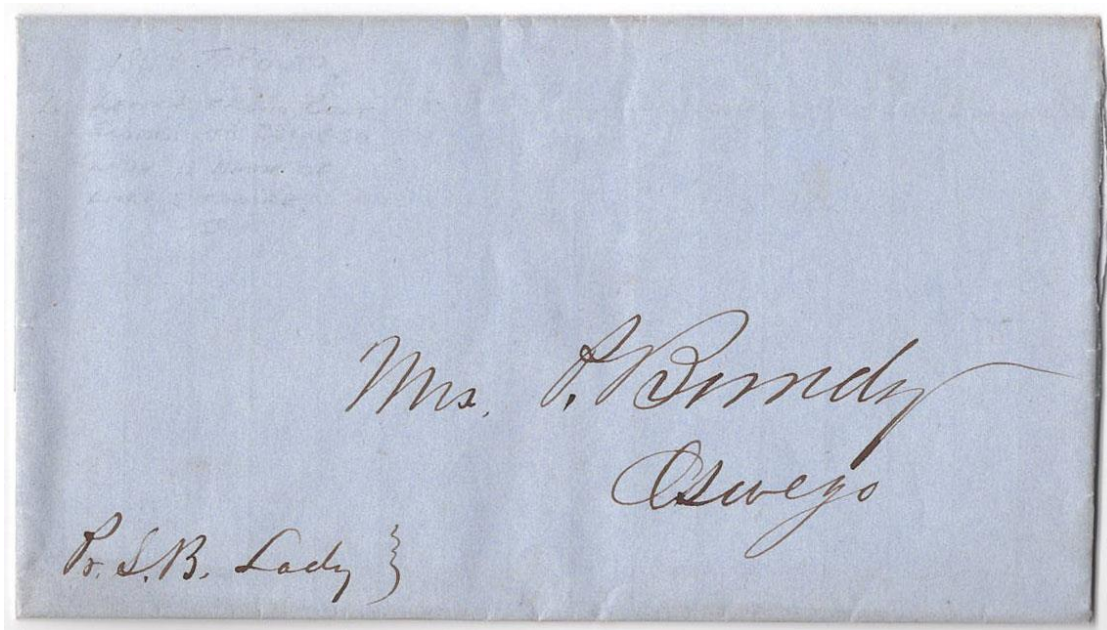 Mrs. P. Bundy
Oswego
Pr. S. B. Lady